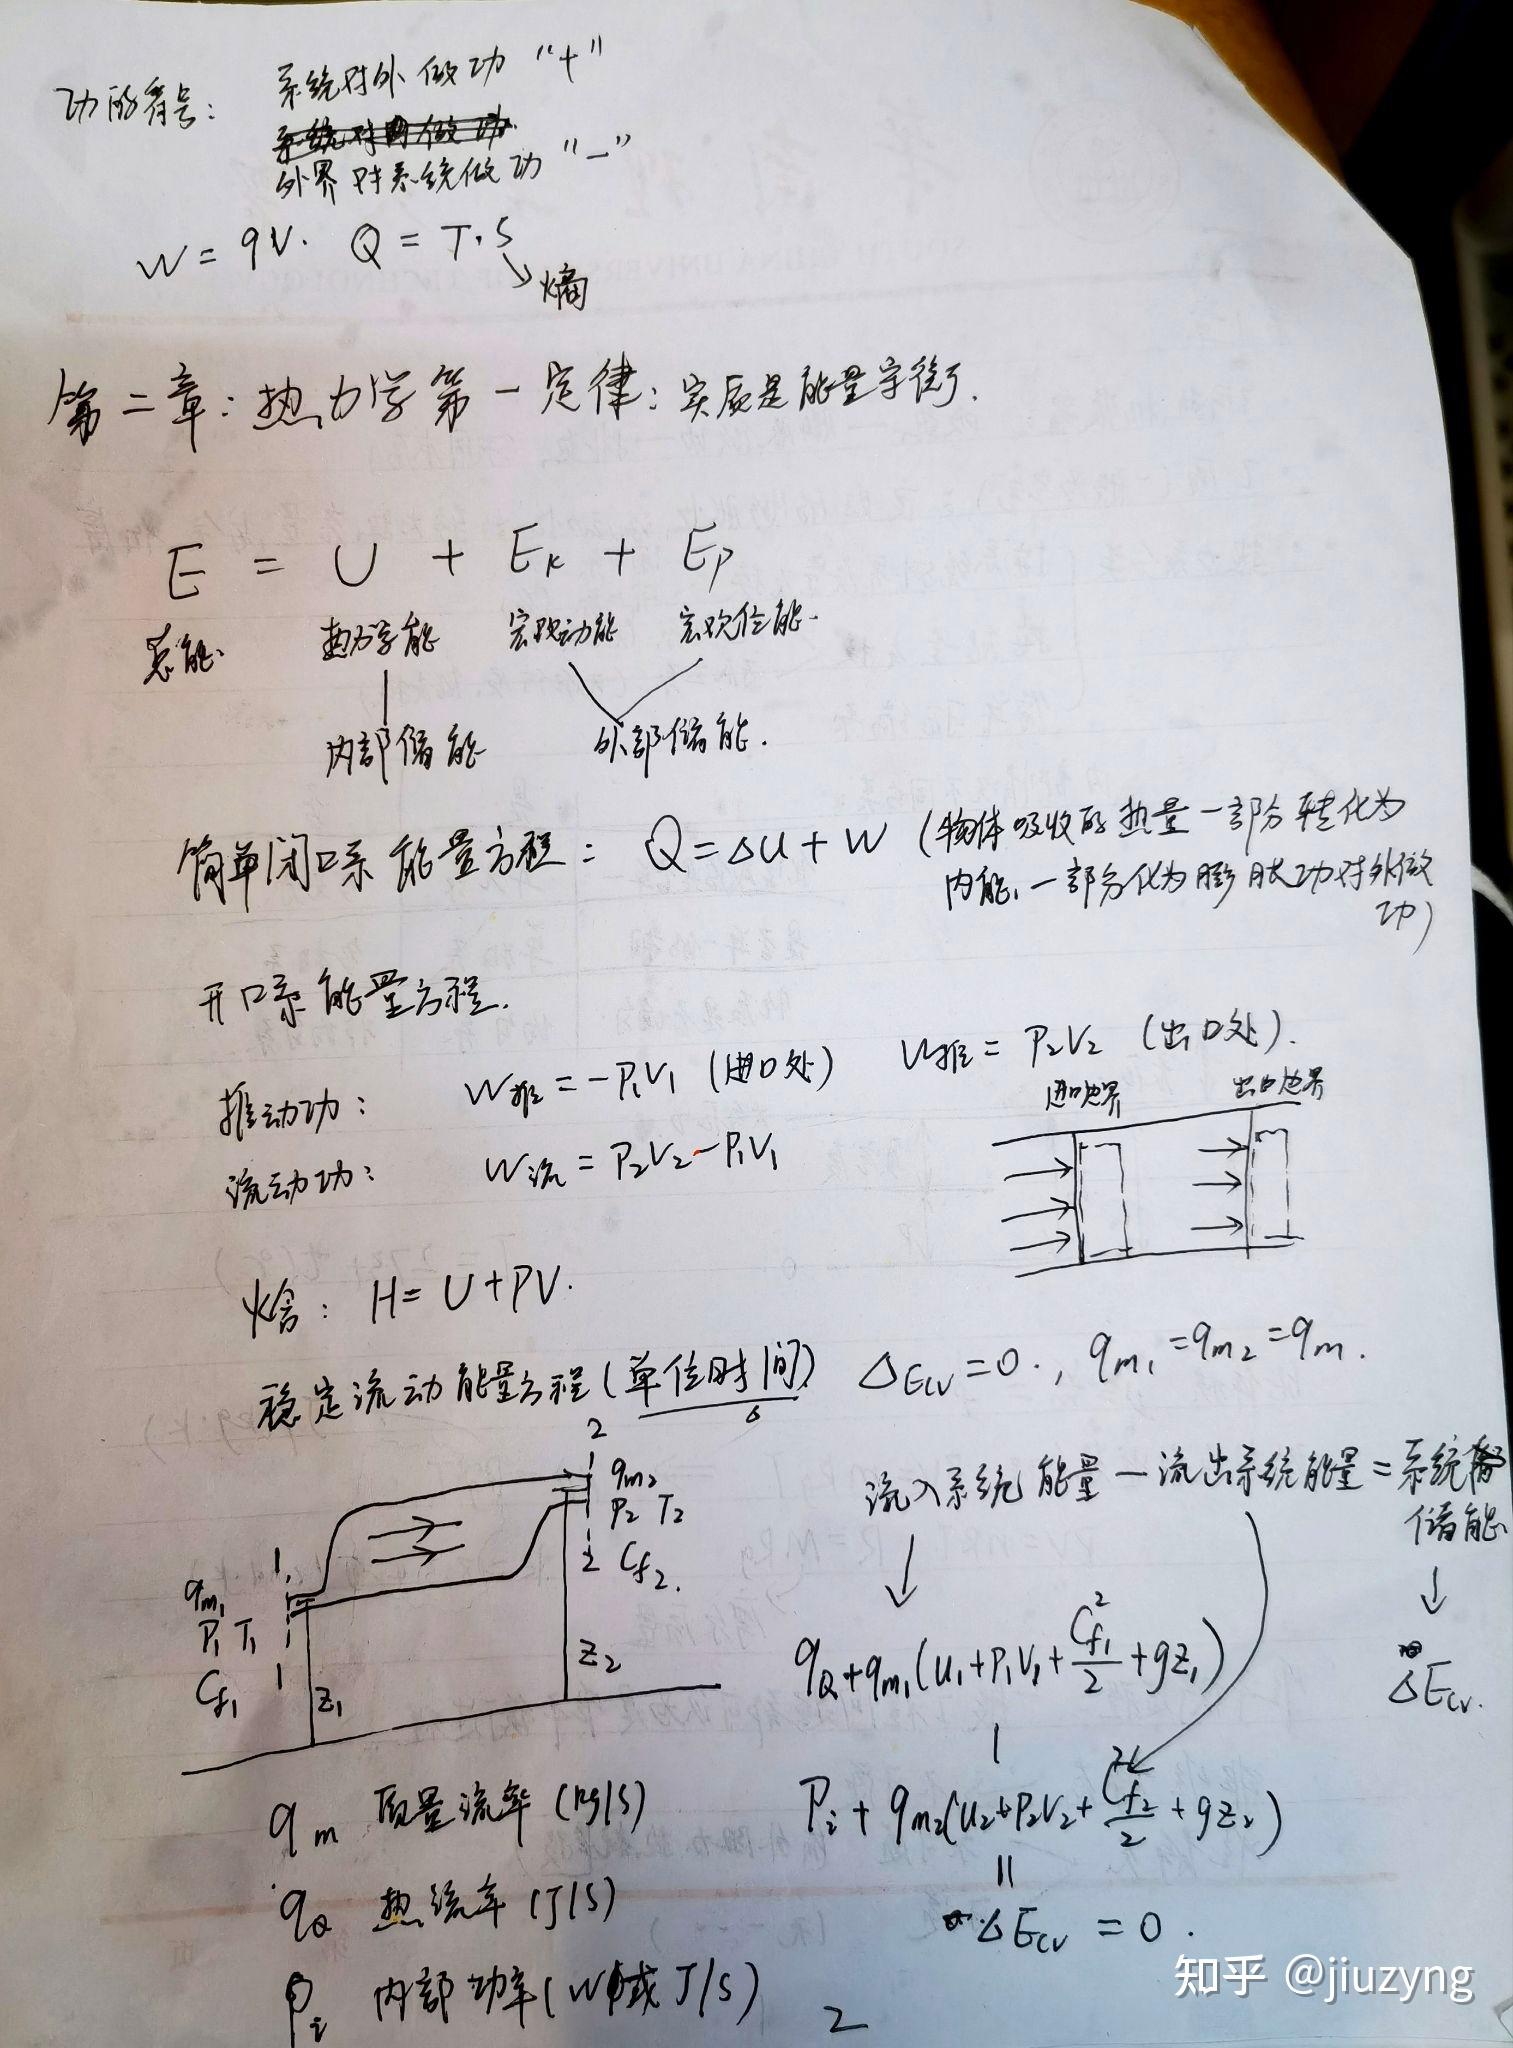 功的符号： 系统对外做功 “+”
外界对系统做功 “－”
W = qV. Q = T.S
熵
第二章：热力学第一定律：实质是能量守衡.
E = U + Ek + Ep
总能. 热力学能 宏观动能 宏观位能.
内部储能 外部储能.
简单闭口系能量方程： Q = ΔU + W (物体吸收的热量一部分转化为
内能,一部分化为膨胀功对外做
功)
开口系能量方程.
推动功： W推 = -P₁V₁ (进口处) W推 = P₂V₂ (出口处).
进口边界 出口边界
流动功： W流 = P₂V₂ - P₁V₁
焓： H = U + PV.
稳定流动能量方程(单位时间) ΔEcv = 0., qm₁ = qm₂ = qm.
s
流入系统能量 — 流出系统能量 = 系统
储能
2
qm₂
P₂ T₂
2 Cf₂.
1
qm₁
P₁ T₁
Cf₁ 1
Z₁
Z₂
qQ + qm₁(U₁+P₁V₁+Cf₁²/2+gZ₁)
ΔEcv.
—
Pi + qm₂(U₂+P₂V₂+Cf₂²/2+gZ₂)
=
ΔEcv = 0.
qm 质量流率 (kg/s)
qQ 热流率 (J/s)
Pi 内部功率 (W或J/s)
2
知乎 @jiuzyng